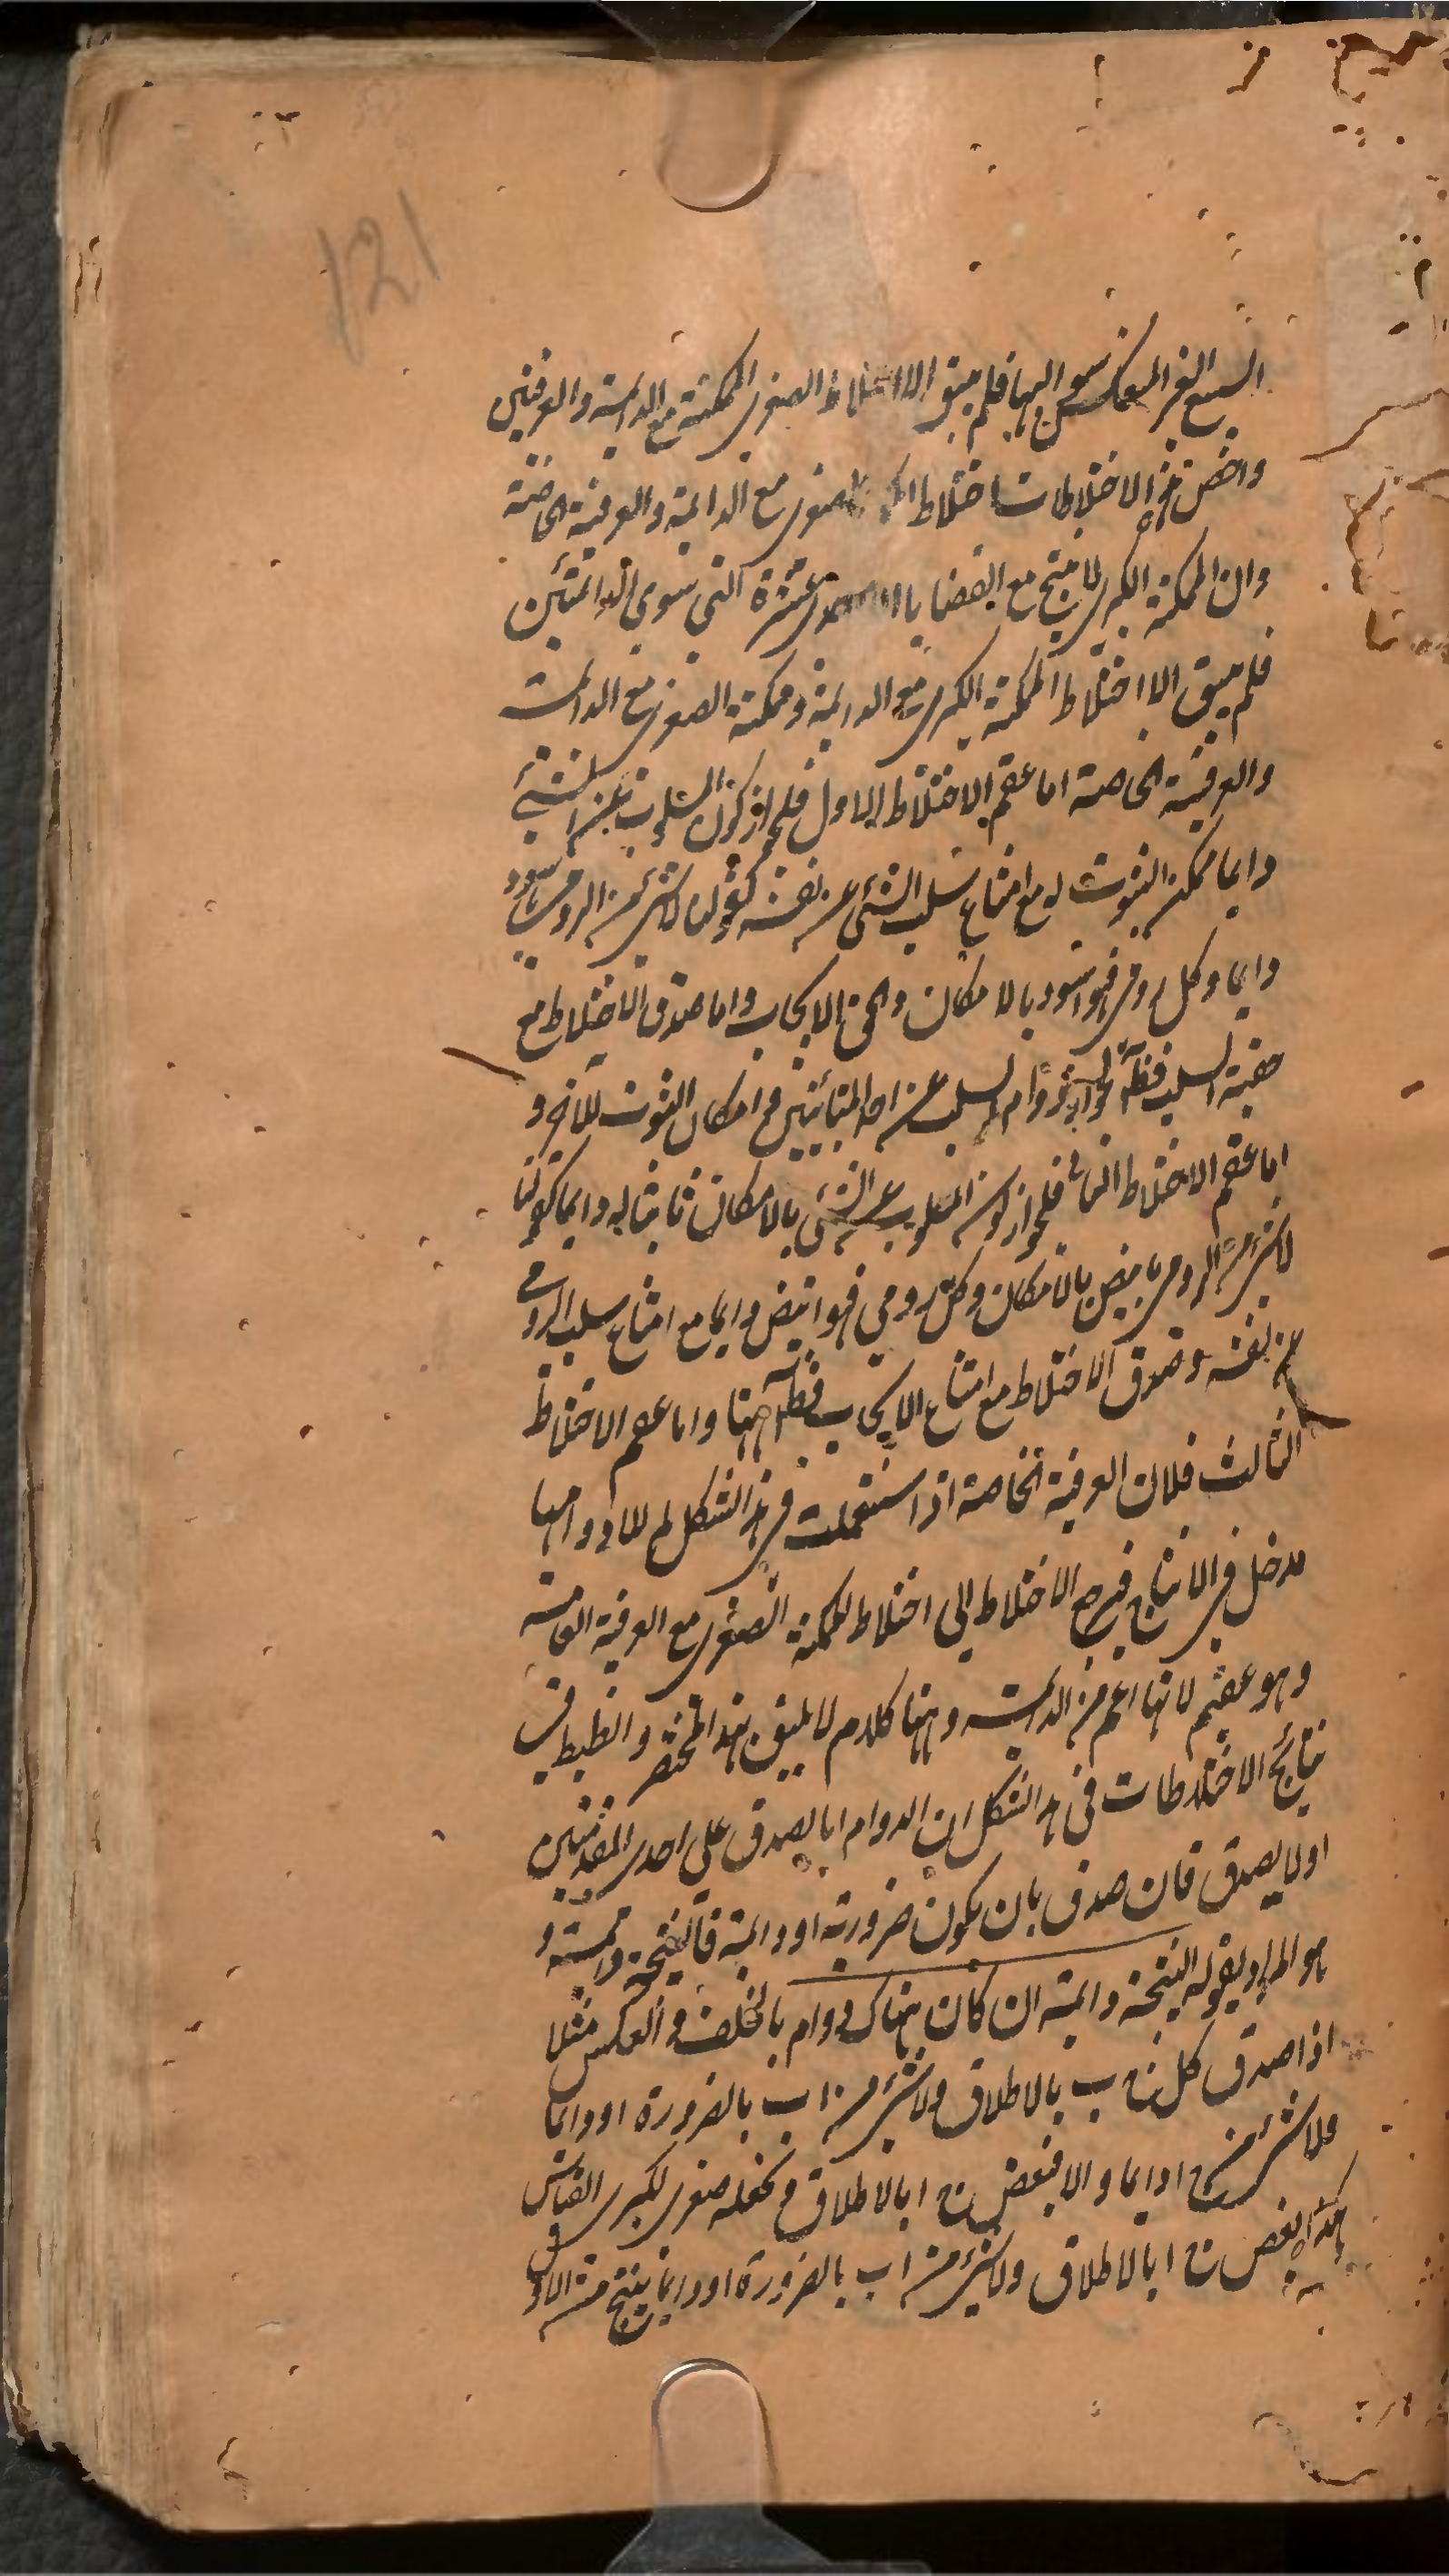 121
السبع الغير المنعكسة سوالبها فلم يبق الا اختلاط الصغرى الممكنة مع الدائمة والعرفيتين
واخص هذه الاختلاطات اختلاط الصغرى مع الدائمة والعرفية الخاصة
وان الممكنة الكبرى لا ينتج مع القضايا عشرة التي سوى الدائمتين
فلم يبق الا اختلاط الممكنة الكبرى مع الدائمة وممكنة الصغرى مع الدائمة
والعرفية الخاصة اما عقم الاختلاط الاول فلجواز كون المسلوب عن الشئ
دايما ممكن الثبوت له مع امتناع سلب الشئ عن نفسه كقولنا لا شئ من الرومى باسود
دايما وكل رومى فهو اسود بالامكان والحق الايجاب واما صدق الاختلاط مع
حقية السلب فظاهر لجواز دوام السلب عن احد المتباينين مع امكان الثبوت للآخر و
اما عقم الاختلاط الثانى فلجواز كون المسلوب عن الشئ بالامكان ثابتا له دايما كقولنا
لا شئ من الرومى بابيض بالامكان وكل رومي فهو ابيض دايما مع امتناع سلب الرومى
عن نفسه وصدق الاختلاط مع امتناع الايجاب فظاهر ههنا واما عقم الاختلاط
الثالث فلان العرفية الخاصة اذا استعملت في هذا الشكل لم للادوامها
مدخل في الانتاج فيرجع الاختلاط الى اختلاط الممكنة الصغرى مع العرفية العامة
وهو عقيم لانها اعم من الدائمة وههنا كلام لا يليق بهذا المختصر والضابط في
نتايج الاختلاطات في هذا الشكل ان الدوام اما يصدق على احدى المقدمتين
او لا يصدق فان صدق بان يكون ضرورية او دائمة فالنتيجة دائمة و
هو المراد بقوله النتيجة دائمة ان كان هناك دوام بالخلف والعكس مثلا
اذا صدق كل ج ب بالاطلاق ولا شئ من ا ب بالضرورة او دايما
فلا شئ من ج ا دايما والا فبعض ج ا بالاطلاق ونجعله صغرى لكبرى القياس
هكذا بعض ج ا بالاطلاق ولا شئ من ا ب بالضرورة او دايما ينتج من الاول